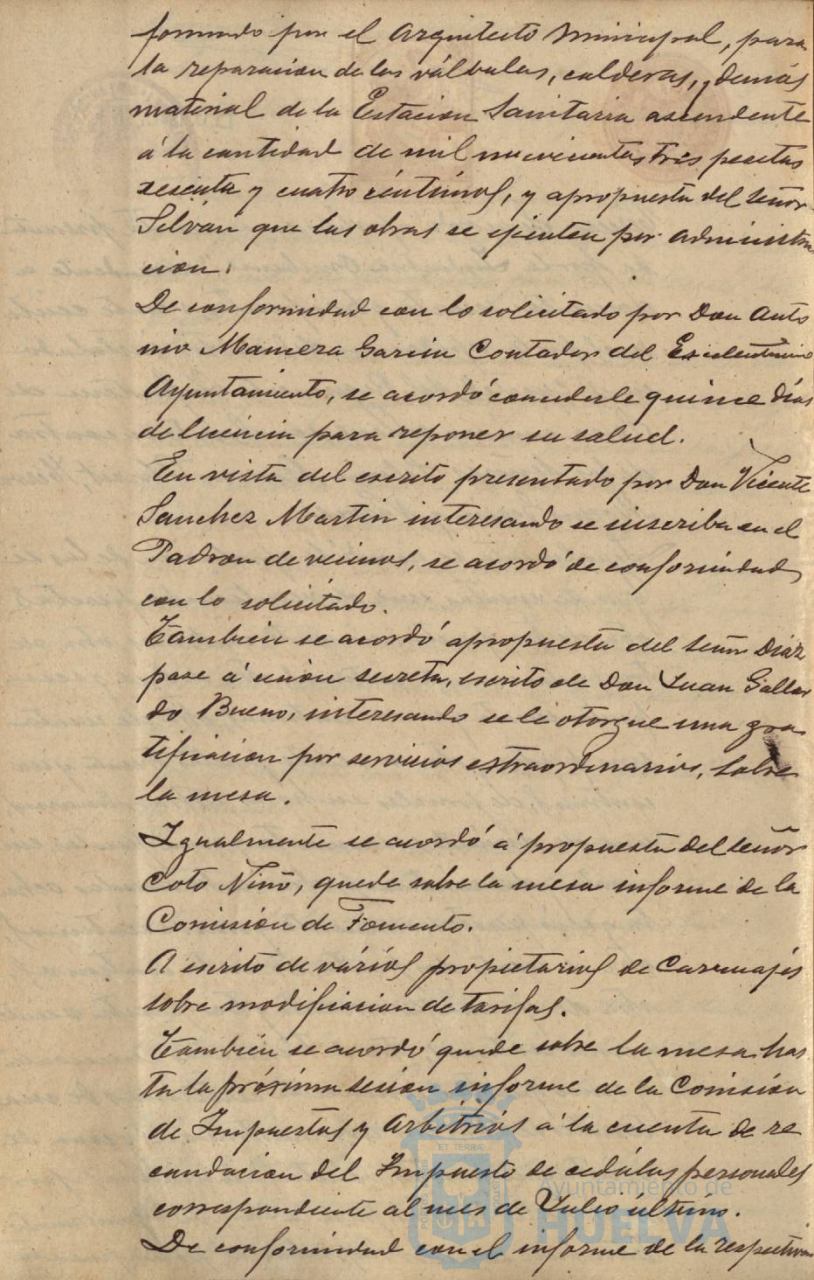 formado por el Arquitecto Municipal, para
la reparacion de las válbulas, calderas, y demás
material de la Estacion Sanitaria ascendente
á la cantidad de mil novecientas tres pesetas
sesenta y cuatro céntimos, y apropuesta del señor
Silván que las obras se ejecuten por administra
cion.
De conformidad con lo solicitado por Don Anto
nio Mancera Garcia Contador del Excelentisimo
Ayuntamiento, se acordó concederle quince días
de licencia para reponer su salud.
En vista del escrito presentado por Don Vicente
Sanchez Martin interesando se inscriba en el
Padron de vecinos, se acordó de conformidad
con lo solicitado.
También se acordó apropuesta del señor Diaz
pase á sesion secreta, escrito de Don Juan Gallar
do Bueno, interesando se le otorgue una gra
tificacion por servicios extraordinarios, sobre
la mesa.
Igualmente se acordó á propuesta del señor
Coto Niño, quede sobre la mesa informe de la
Comisión de Fomento.
A escrito de vários propietarios de Carruajes
sobre modificacion de tarifas.
También se acordó quede sobre la mesa has
ta la próxima sesion informe de la Comisión
de Impuestos y Arbitrios á la cuenta de re
caudacion del Impuesto de cedúlas personales
correspondiente al mes de Julio último.
De conformidad con el informe de la respectiva
Ayuntamiento de
HUELVA